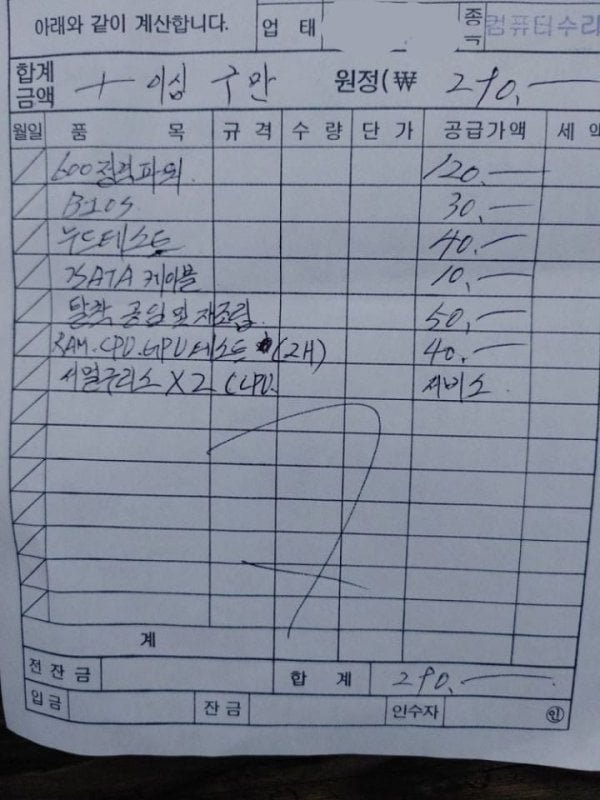 아래와 같이 계산합니다. 업 태 종 컴퓨터수리
합계금액 이십 구만 원정(₩ 290.
월일 품 목 규 격 수 량 단 가 공급가액 세 액
600정격파워. 120.
BIOS. 30.
누드테스트 40.
SATA 케이블 10.
탈착 공임 및 재조립. 50.
RAM.CPU.GPU테스트 (2H) 40.
서멀구리스 X2 (CPU. 서비스.
계
전잔금 합 계 290.
입금 잔금 인수자 인